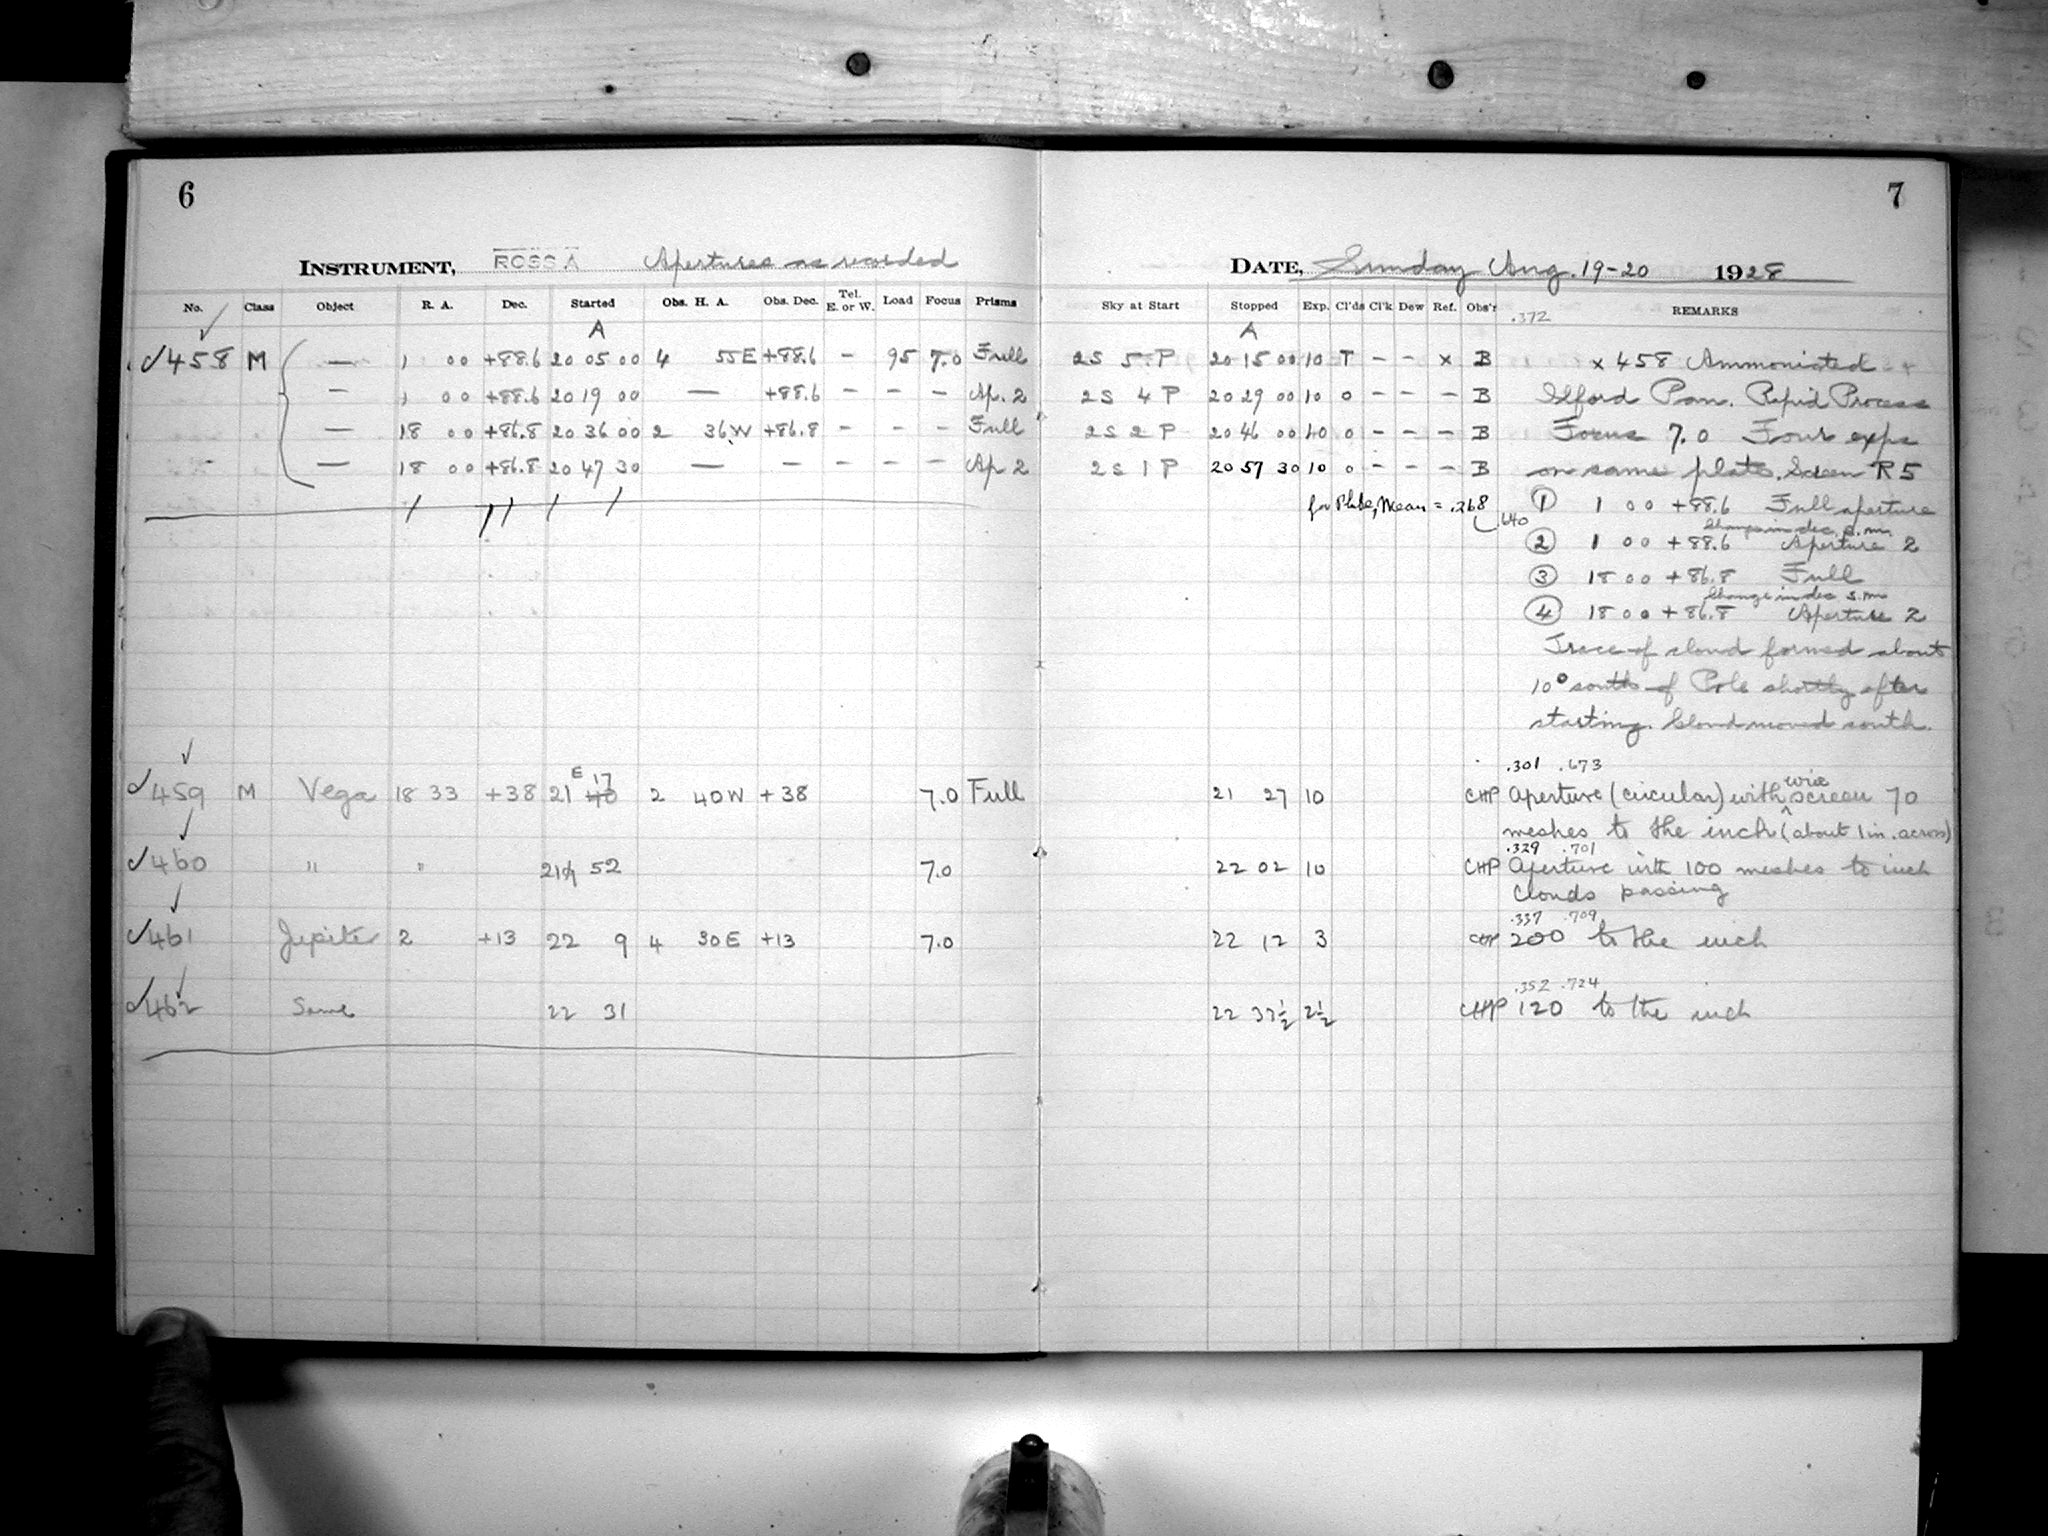 6
INSTRUMENT, ROSS A Apertures as recorded
No. Class Object R. A. Dec. Started Obs. H. A. Obs. Dec. Tel. E. or W. Load Focus Prisms
A
458 M — 1 00 +88.6 20 05 00 4 55E +88.6 — 95 7.0 Full
— 1 00 +88.6 20 19 00 — +88.6 — — — Ap. 2
— 18 00 +86.8 20 36 00 2 36W +86.8 — — — Full
— 18 00 +86.8 20 47 30 — — — — — Ap 2
459 M Vega 18 33 +38 21 17 40 E 2 40W +38 7.0 Full
460 " " 21 52 7.0
461 Jupiter 2 +13 22 9 4 30E +13 7.0
462 Same 22 31
7
DATE, Sunday Aug. 19-20 1928
Sky at Start Stopped Exp. Cl'ds Cl'k Dew Ref. Obs'r REMARKS
A .372
2S 5 P 20 15 00 10 T — — x B x 458 Ammoniated
2S 4 P 20 29 00 10 0 — — — B Ilford Pan. Rapid Process
2S 2 P 20 46 00 10 0 — — — B Focus 7.0 Four exps
2S 1 P 20 57 30 10 0 — — — B on same plate. Screen R5
for Plate, Mean = .268 .640
① 1 00 +88.6 Full aperture
Change in dec. 5 mm
② 1 00 +88.6 Aperture 2
③ 18 00 +86.8 Full
Change in dec 5 mm
④ 18 00 +86.8 Aperture 2
Trace of cloud formed about
10° south of Pole shortly after
starting. Cloud moved south.
.301 .673
21 27 10 CHP Aperture (circular) with wire screen 70
meshes to the inch (about 1 in. across)
.329 .701
22 02 10 CHP Aperture with 100 meshes to inch
Clouds passing
.337 .709
22 12 3 CHP 200 to the inch
.352 .724
22 33½ 2½ CHP 120 to the inch